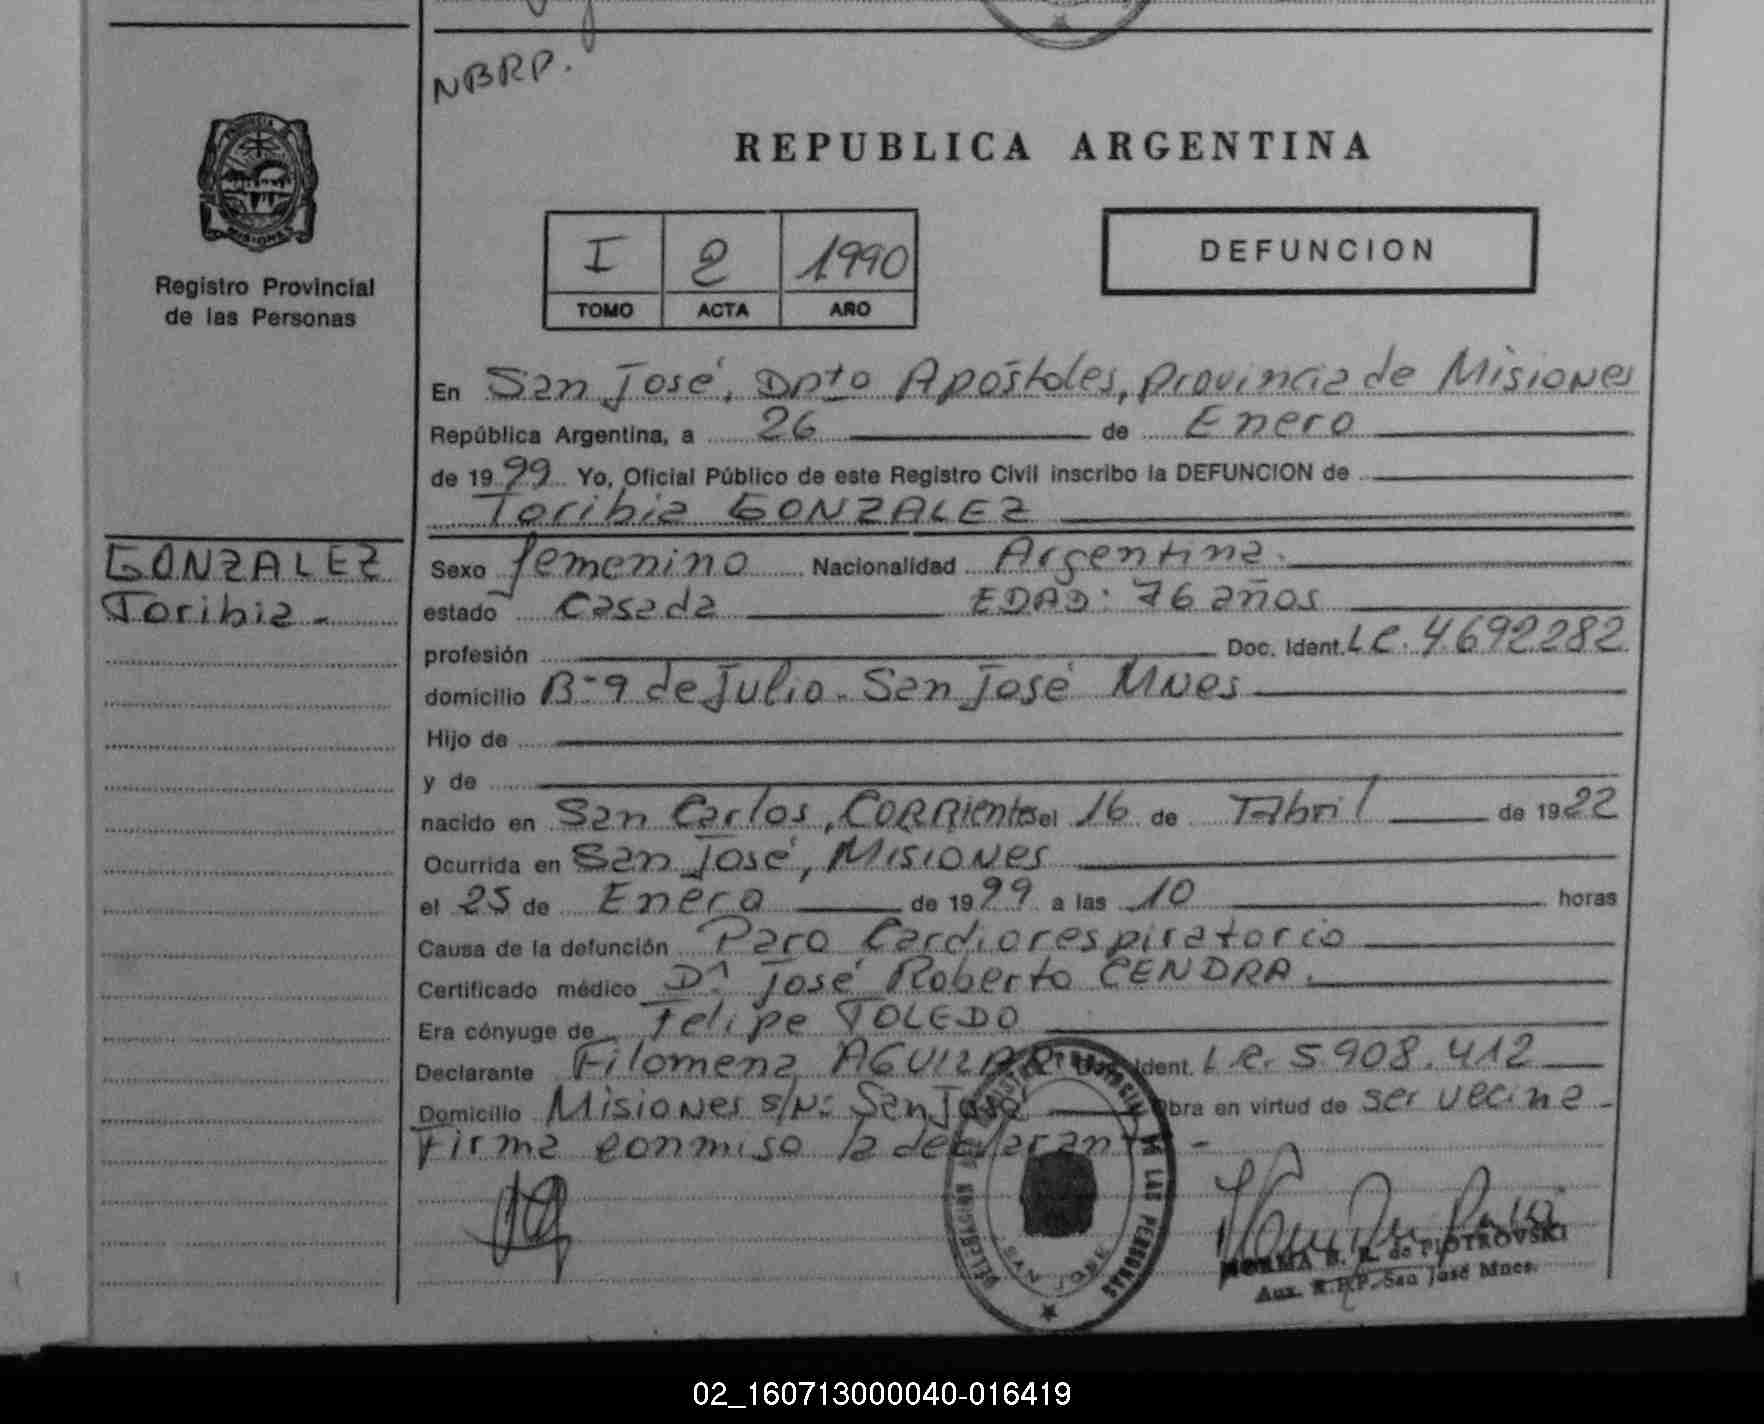 NBRP.
PROVINCIA DE
MISIONES
Registro Provincial
de las Personas
REPUBLICA ARGENTINA
I 2 1990
TOMO ACTA AÑO
DEFUNCION
En San José, Dpto Apóstoles, provincia de Misiones
República Argentina, a 26 de Enero
de 1999 Yo, Oficial Público de este Registro Civil inscribo la DEFUNCION de
Toribia GONZALEZ
GONZALEZ
Toribia -
Sexo femenino Nacionalidad Argentina.
estado Casada EDAD: 76 años
profesión Doc. Ident. L.C. 4.692.282
domicilio B-9 de Julio - San José Mnes
Hijo de
y de
nacido en San Carlos, CORRIENTES el 16 de Abril de 1922
Ocurrida en San José, Misiones
el 25 de Enero de 1999 a las 10 horas
Causa de la defunción Paro Cardiorespiratorio
Certificado médico Dr. José Roberto CENDRA.
Era cónyuge de Felipe TOLEDO
Declarante Filomena AGUILAR Ident. L.C. 5.908.412
Domicilio Misiones s/N: San José Obra en virtud de ser vecina -
Firma conmigo la declarante -
DE LAS PERSONAS
SAN JOSE
NORMA B. R. de PIOTROVSKI
Aux. R.P.P. San José Mnes.
02_160713000040-016419